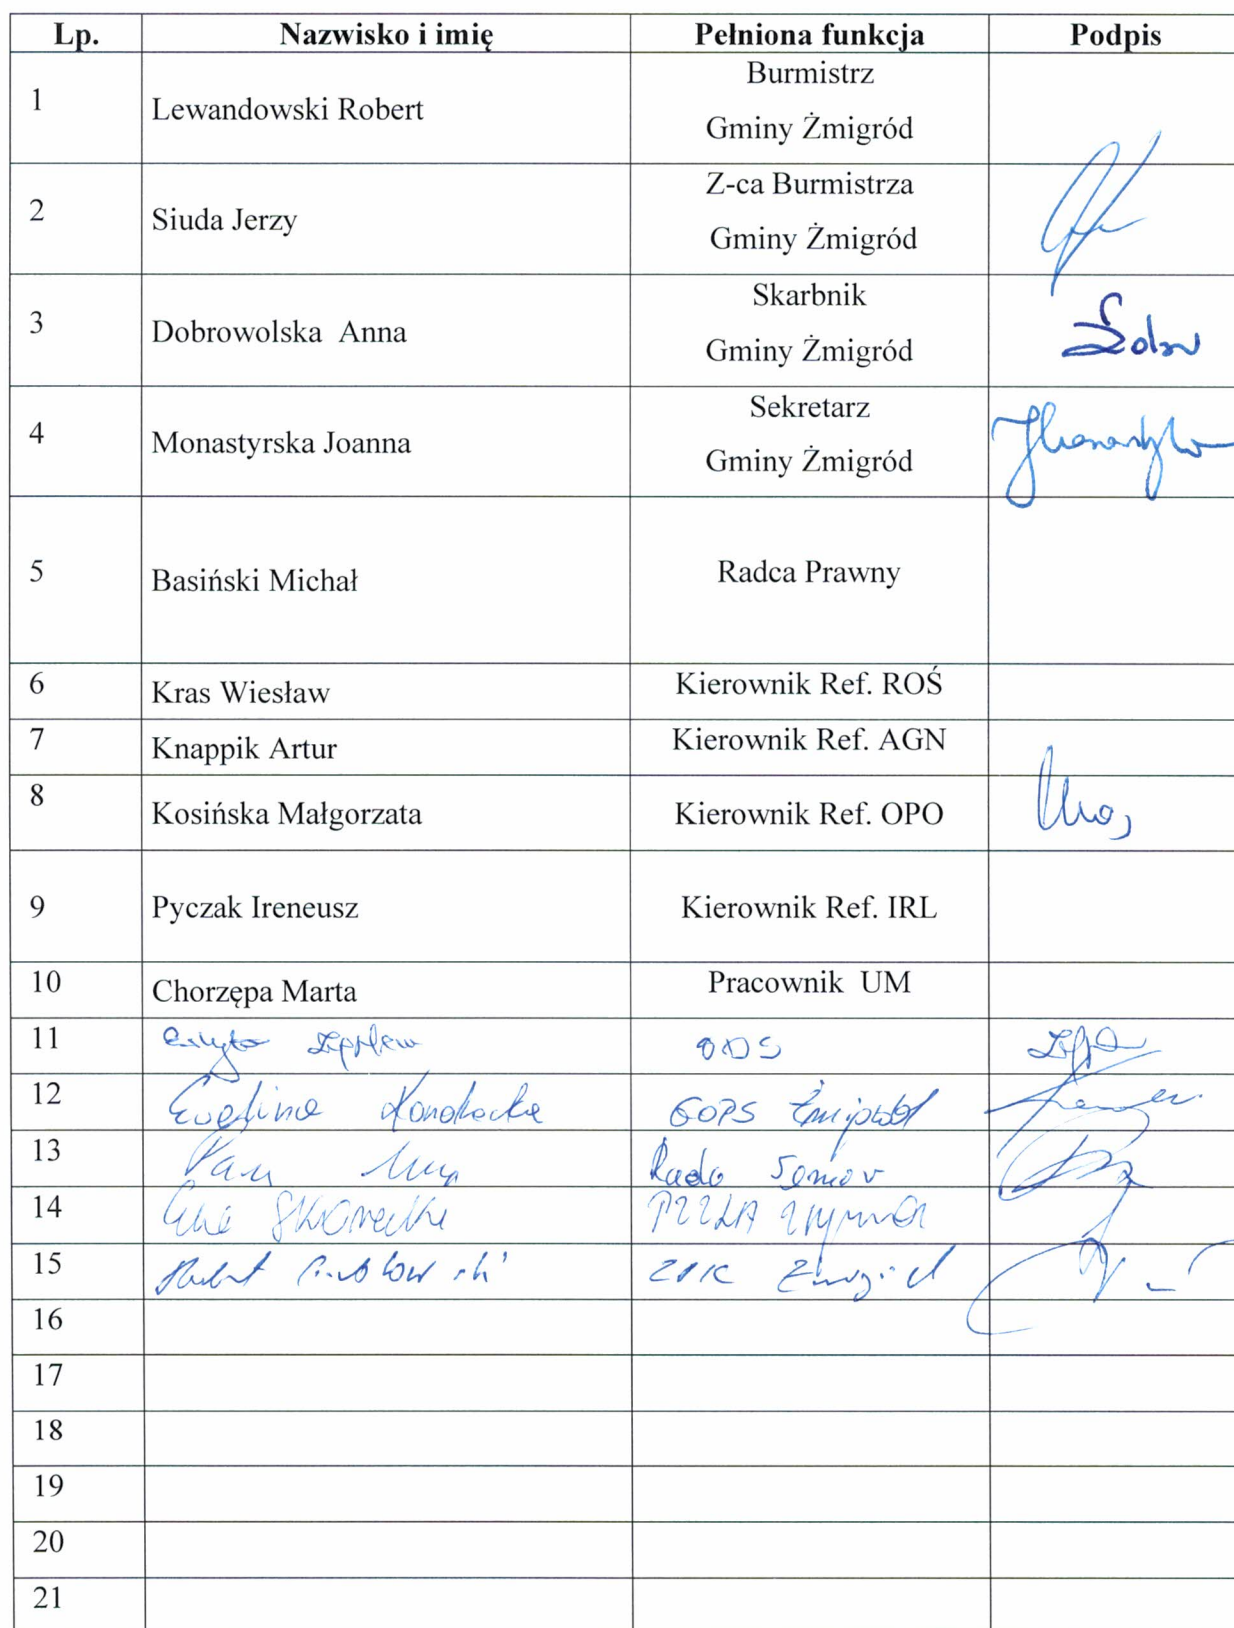 Lp. Nazwisko i imię Pełniona funkcja Podpis
1 Lewandowski Robert Burmistrz
Gminy Żmigród
2 Siuda Jerzy Z-ca Burmistrza
Gminy Żmigród
3 Dobrowolska Anna Skarbnik
Gminy Żmigród
4 Monastyrska Joanna Sekretarz
Gminy Żmigród
5 Basiński Michał Radca Prawny
6 Kras Wiesław Kierownik Ref. ROŚ
7 Knappik Artur Kierownik Ref. AGN
8 Kosińska Małgorzata Kierownik Ref. OPO
9 Pyczak Ireneusz Kierownik Ref. IRL
10 Chorzępa Marta Pracownik UM
11
12 Ewelina GOPS Żmigród
13 Rada
14
15 Żmigród
16
17
18
19
20
21